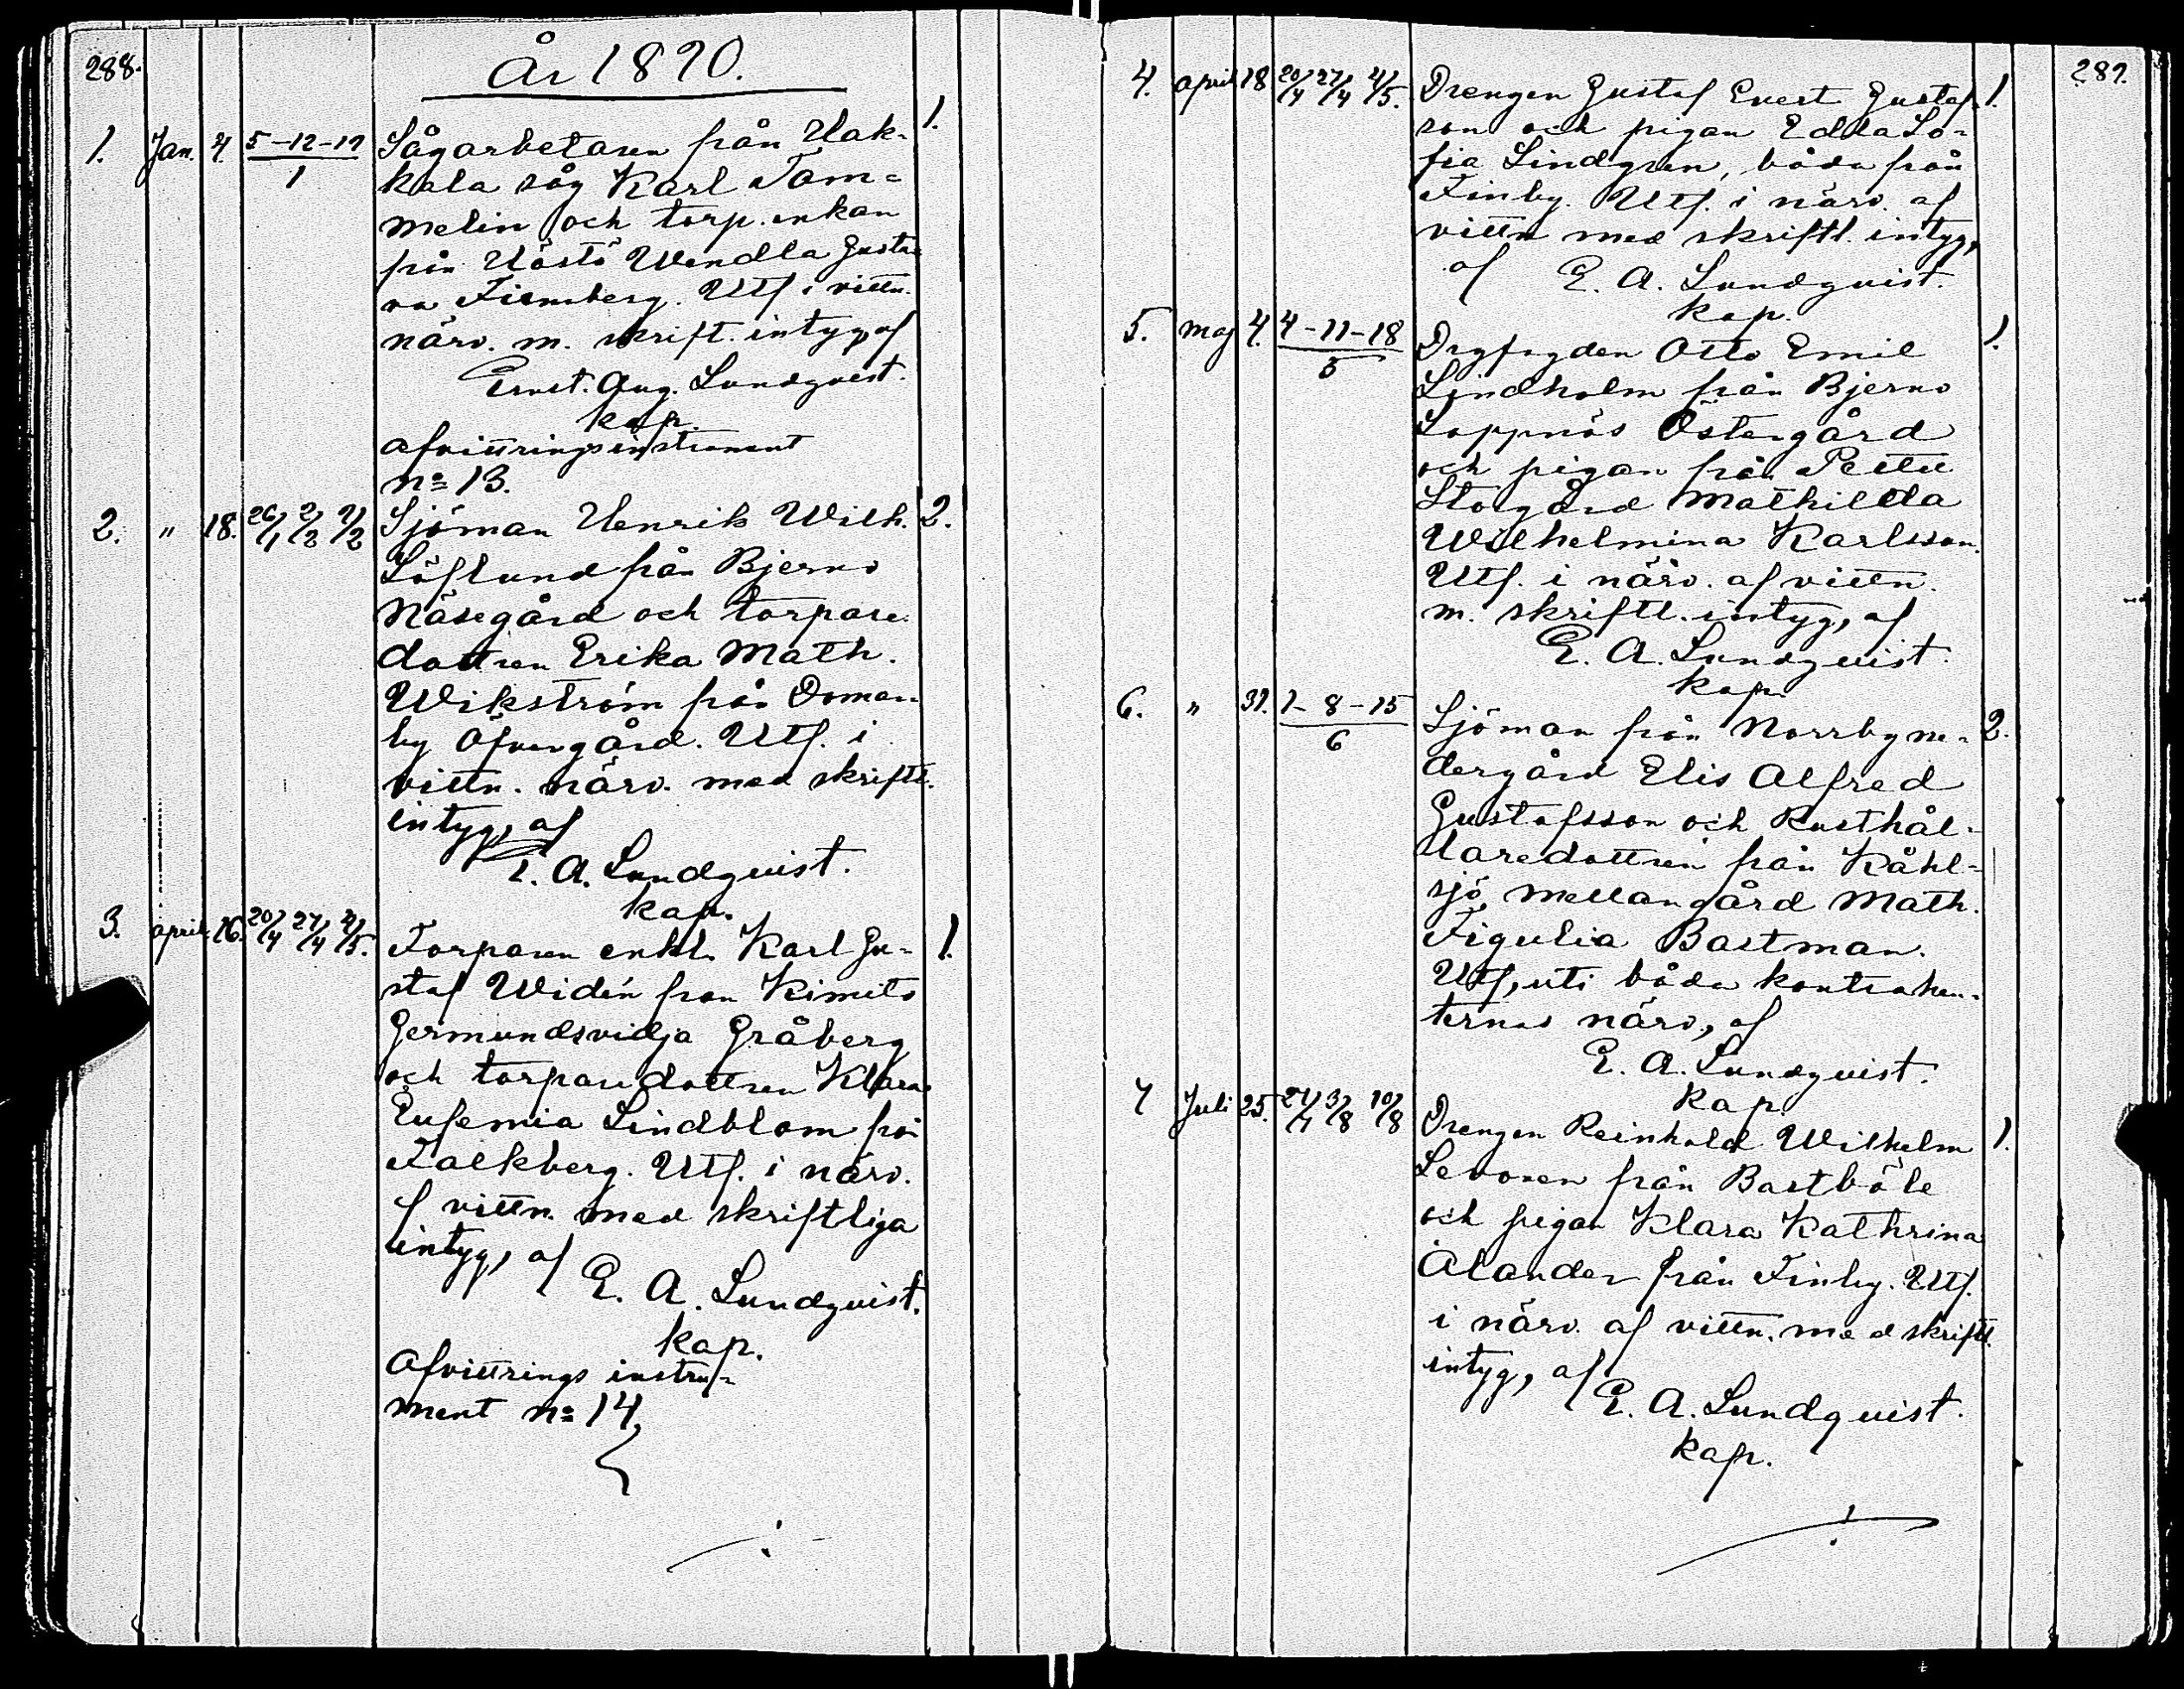 288.
År 1890.
1. Jan. 4. 5-12-19 Sågarbetaren från Hak- 1.
1
kala såg Karl Tam=
melin och torp. enkan
från Höstö Wendla Gusta
va Firmberg. Utf. i vittn.
närv. m. skrift. intyg, af
Ernst. Aug. Lundqvist.
kap.
Afvittringsinstrument
no 13.
2. " 18. 26/1 2/2 9/2 Sjöman Henrik Wilh. 2.
Löflund från Bjerno
Näsegård och torpare
dottren Erika Math.
Wikström från Doman-
by Öfvergård. Utf. i
vittn. närv. med skriftl.
intyg, af
E. A. Lundqvist.
kap.
3. april 16. 20/4 27/4 4/5. Torparen enkl. Karl Gu- 1.
staf Widén från Kimito
Germundsvidja Gråberg
och torparedottren Klara
Eufemia Lindblom från
Falkberg. Utf. i närv.
af vittn. med skriftliga
intyg, af
E. A. Lundqvist.
kap.
Afvittrings instru-
ment no 14.
289.
4. april 18 20/4 27/4 4/5. Drengen Gustaf Evert Gustaf- 1.
son och pigan Edla So-
fia Lindgren, båda från
Finby. Utf. i närv. af
vittn med skriftl. intyg,
af E. A. Lundqvist.
kap.
5. Maj 4. 4-11-18 1.
5
Otto Emil
Lindholm från Bjerno
Lappnäs Östergård
och pigan från Pettu
Storgård Mathilda
Wilhelmina Karlsson.
Utf. i närv. af vittn.
m. skriftl. intyg, af
E. A. Lundqvist.
kap.
6. " 31. 1-8-15 Sjöman från Norrby ne- 2.
6
dergård Elis Alfred
Gustafsson och Rusthål-
laredottren från Kåhl-
sjö Mellangård Math.
Figulia Bastman.
Utf, uti båda kontrahen-
ternas närv, af
E. A. Lundqvist.
kap.
7 Juli 25. 27/7 3/8 10/8 Drengen Reinhold Wilhelm 1.
Levonen från Bastböle
och pigan Klara Kathrina
Ålander från Finby. Utf.
i närv. af vittn. med skriftl.
intyg, af
E. A. Lundqvist.
kap.